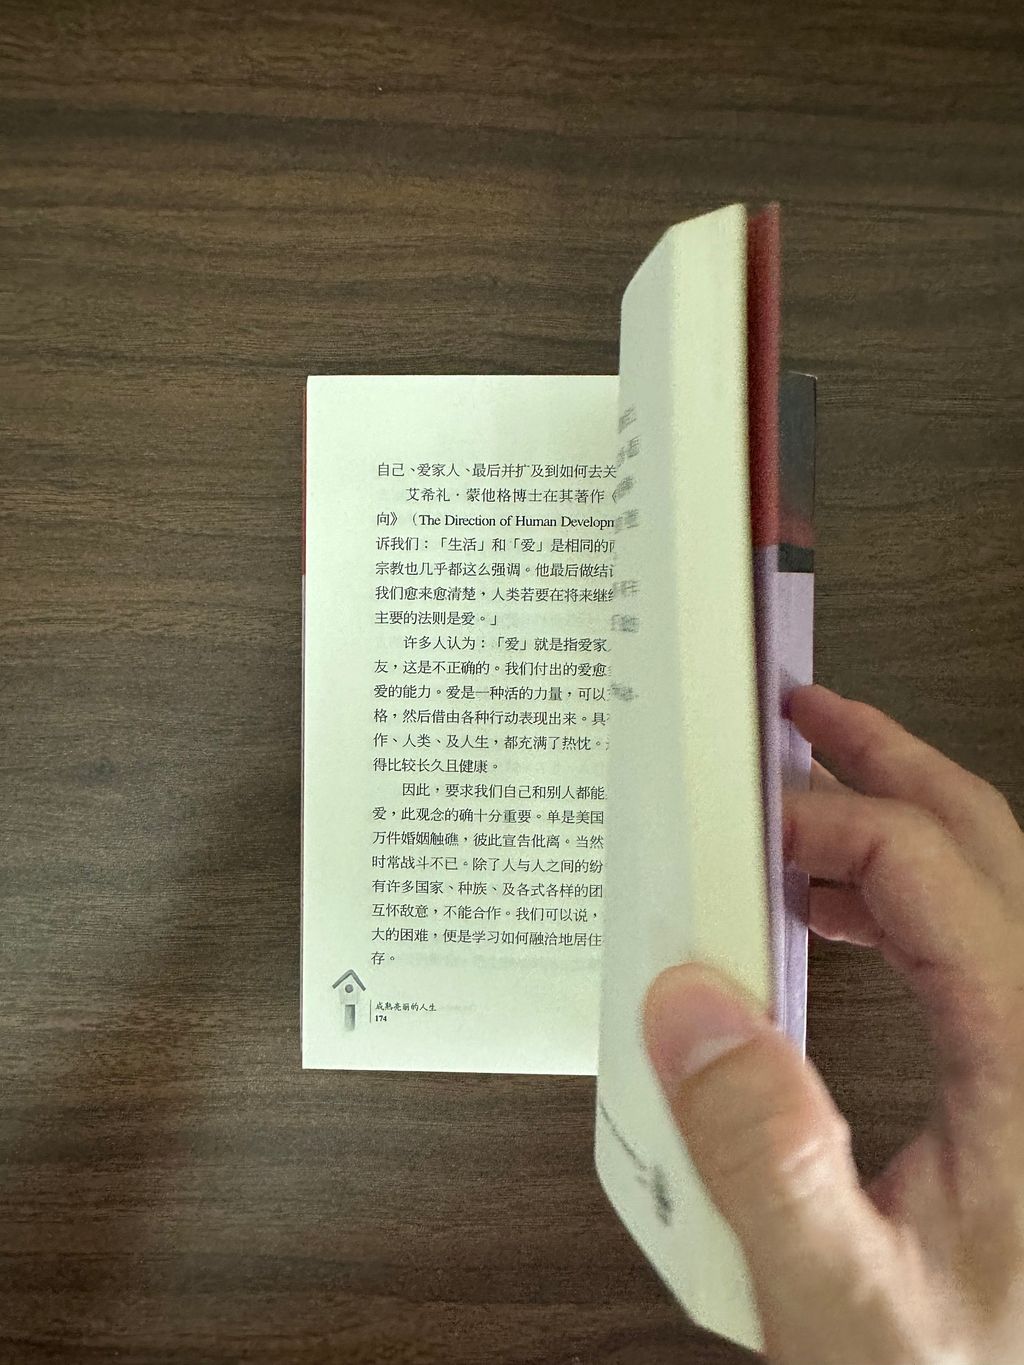 自己、爱家人、最后并扩及到如何去关
艾希礼·蒙他格博士在其著作《
向》（The Direction of Human Developm
诉我们：「生活」和「爱」是相同的
宗教也几乎都这么强调。他最后做结
我们愈来愈清楚，人类若要在将来继
主要的法则是爱。」
许多人认为：「爱」就是指爱家
友，这是不正确的。我们付出的爱愈
爱的能力。爱是一种活的力量，可以
格，然后借由各种行动表现出来。具
作、人类、及人生，都充满了热忱。
得比较长久且健康。
因此，要求我们自己和别人都能
爱，此观念的确十分重要。单是美国
万件婚姻触礁，彼此宣告仳离。当然
时常战斗不已。除了人与人之间的纷
有许多国家、种族、及各式各样的团
互怀敌意，不能合作。我们可以说，
大的困难，便是学习如何融洽地居住
存。
成熟亮丽的人生
174